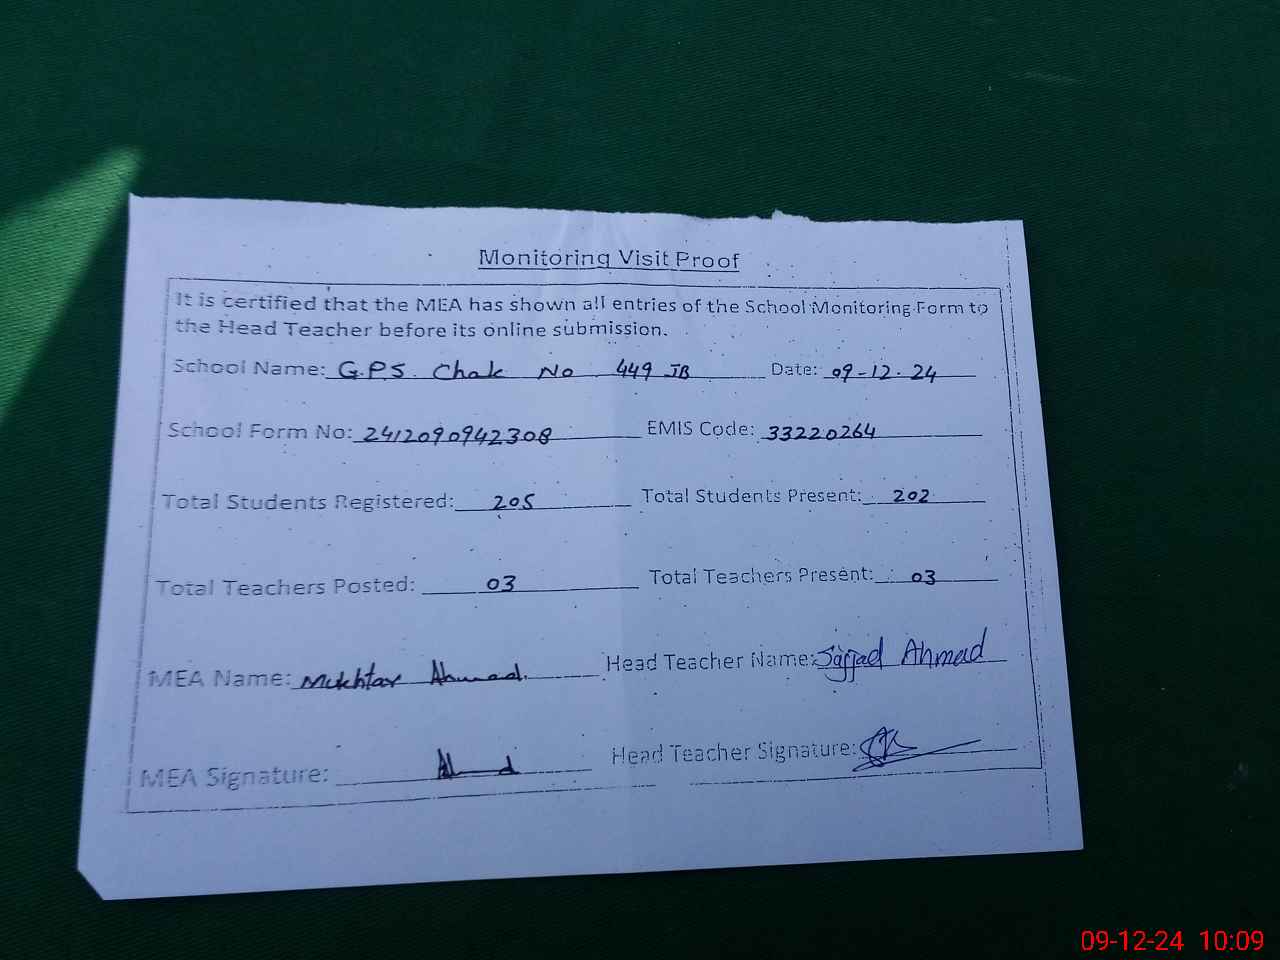 Monitoring Visit Proof
It is certified that the MEA has shown all entries of the School Monitoring Form to
the Head Teacher before its online submission.
School Name: G.P.S. Chak No 449 JB Date: 09-12-24
School Form No: 2412090942308 EMIS Code: 33220264
Total Students Registered: 205 Total Students Present: 202
Total Teachers Posted: 03 Total Teachers Present: 03
MEA Name: Mukhtar Ahmad. Head Teacher Name: Sajjad Ahmad
MEA Signature: Head Teacher Signature:
09-12-24 10:09